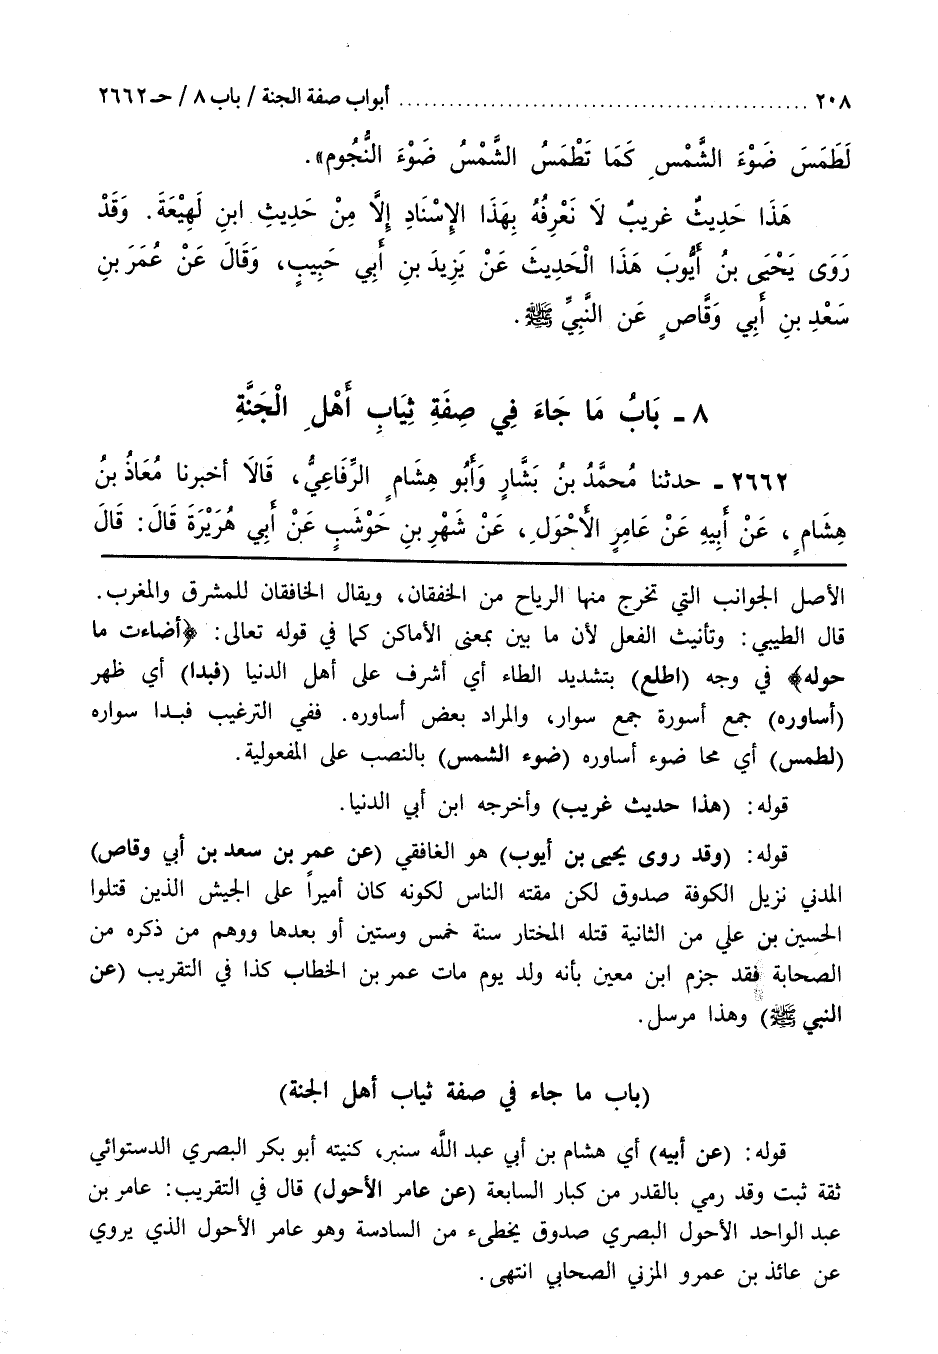 ٢٠٨ ................................................ أبواب صفة الجنة / باب ٨ / حـ ٢٦٦٢
لَطَمَسَ ضَوْءَ الشَّمْسِ كَمَا تَطْمَسُ الشَّمْسُ ضَوْءَ النُّجُومِ».
هَذَا حَدِيثٌ غريبٌ لَا نَعْرِفُهُ بِهَذَا الإِسْنَادِ إِلَّا مِنْ حَدِيثِ ابنِ لَهِيْعَةَ. وَقَدْ
رَوَى يَحْيَى بنُ أَيُّوبَ هَذَا الْحَدِيثَ عَنْ يَزِيدَ بنِ أَبي حَبِيبٍ، وَقَالَ عَنْ عُمَرَ بنِ
سَعْدِ بنِ أَبي وَقَّاصٍ عَن النَّبيِّ ﷺ.
٨ ـ بَابُ مَا جَاءَ فِي صِفَةِ ثِيَابِ أَهْلِ الْجَنَّةِ
٢٦٦٢ ـ حدثنا مُحمَّدُ بنُ بَشَّارٍ وَأَبُو هِشَامٍ الرِّفَاعِيُّ، قَالَا أخبرنا مُعَاذُ بنُ
هِشَامٍ، عَنْ أَبِيهِ عَنْ عَامِرٍ الأَحْوَلِ، عَنْ شَهْرِ بنِ حَوْشَبٍ عَنْ أَبي هُرَيْرَةَ قَالَ: قَالَ
الأصل الجوانب التي تخرج منها الرياح من الخفقان، ويقال الخافقان للمشرق والمغرب.
قال الطيبي: وتأنيث الفعل لأن ما بين بمعنى الأماكن كما في قوله تعالى: ﴿أضاءت ما
حوله﴾ في وجه (اطلع) بتشديد الطاء أي أشرف على أهل الدنيا (فبدا) أي ظهر
(أساوره) جمع أسورة جمع سوار، والمراد بعض أساوره. ففي الترغيب فبدا سواره
(لطمس) أي محا ضوء أساوره (ضوء الشمس) بالنصب على المفعولية.
قوله: (هذا حديث غريب) وأخرجه ابن أبي الدنيا.
قوله: (وقد روى يحيى بن أيوب) هو الغافقي (عن عمر بن سعد بن أبي وقاص)
المدني نزيل الكوفة صدوق لكن مقته الناس لكونه كان أميراً على الجيش الذين قتلوا
الحسين بن علي من الثانية قتله المختار سنة خمس وستين أو بعدها ووهم من ذكره من
الصحابة فقد جزم ابن معين بأنه ولد يوم مات عمر بن الخطاب كذا في التقريب (عن
النبي ﷺ) وهذا مرسل.
(باب ما جاء في صفة ثياب أهل الجنة)
قوله: (عن أبيه) أي هشام بن أبي عبد اللَّه سنبر، كنيته أبو بكر البصري الدستوائي
ثقة ثبت وقد رمي بالقدر من كبار السابعة (عن عامر الأحول) قال في التقريب: عامر بن
عبد الواحد الأحول البصري صدوق يخطىء من السادسة وهو عامر الأحول الذي يروي
عن عائذ بن عمرو المزني الصحابي انتهى.